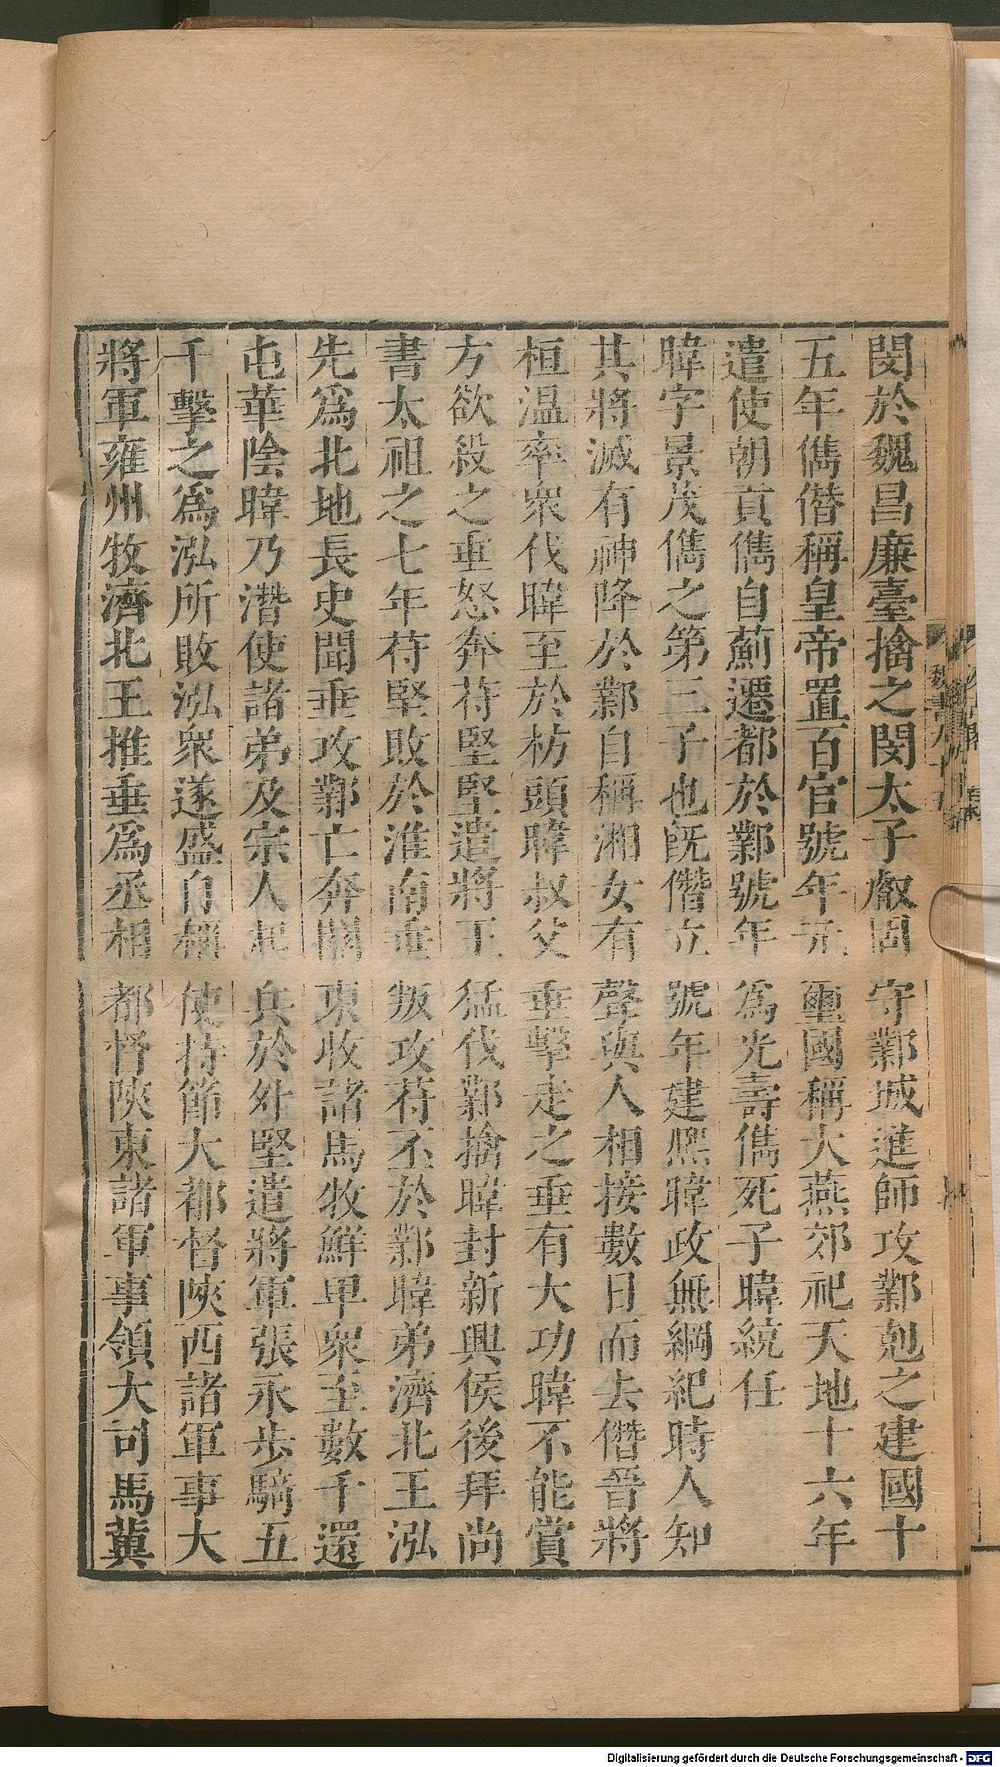 閔於魏昌廉臺擒之閔太子叡固守鄴城進師攻鄴剋之建國十
五年儁僭稱皇帝置百官號年元璽國稱大燕郊祀天地十六年
遣使朝貢儁自薊遷都於鄴號年爲光壽儁死子暐統任
暐字景茂儁之第三子也旣僭立號年建熈暐政無綱紀時人知
其將滅有神降於鄴自稱湘女有聲與人相接數日而去僭晉將
桓温率衆伐暐至於枋頭暐叔父垂擊走之垂有大功暐不能賞
方欲殺之垂怒奔苻堅堅遣將王猛伐鄴擒暐封新興侯後拜尚
書太祖之七年苻堅敗於淮南垂叛攻苻丕於鄴暐弟濟北王泓
先爲北地長史聞垂攻鄴亡奔關東收諸馬牧鮮卑衆至數千還
屯華陰暐乃潛使諸弟及宗人起兵於外堅遣將軍張永步騎五
千擊之爲泓所敗泓衆遂盛自稱使持節大都督陝西諸軍事大
將軍雍州牧濟北王推垂爲丞相都督陝東諸軍事領大司馬冀
Digitalisierung gefördert durch die Deutsche Forschungsgemeinschaft - DFG